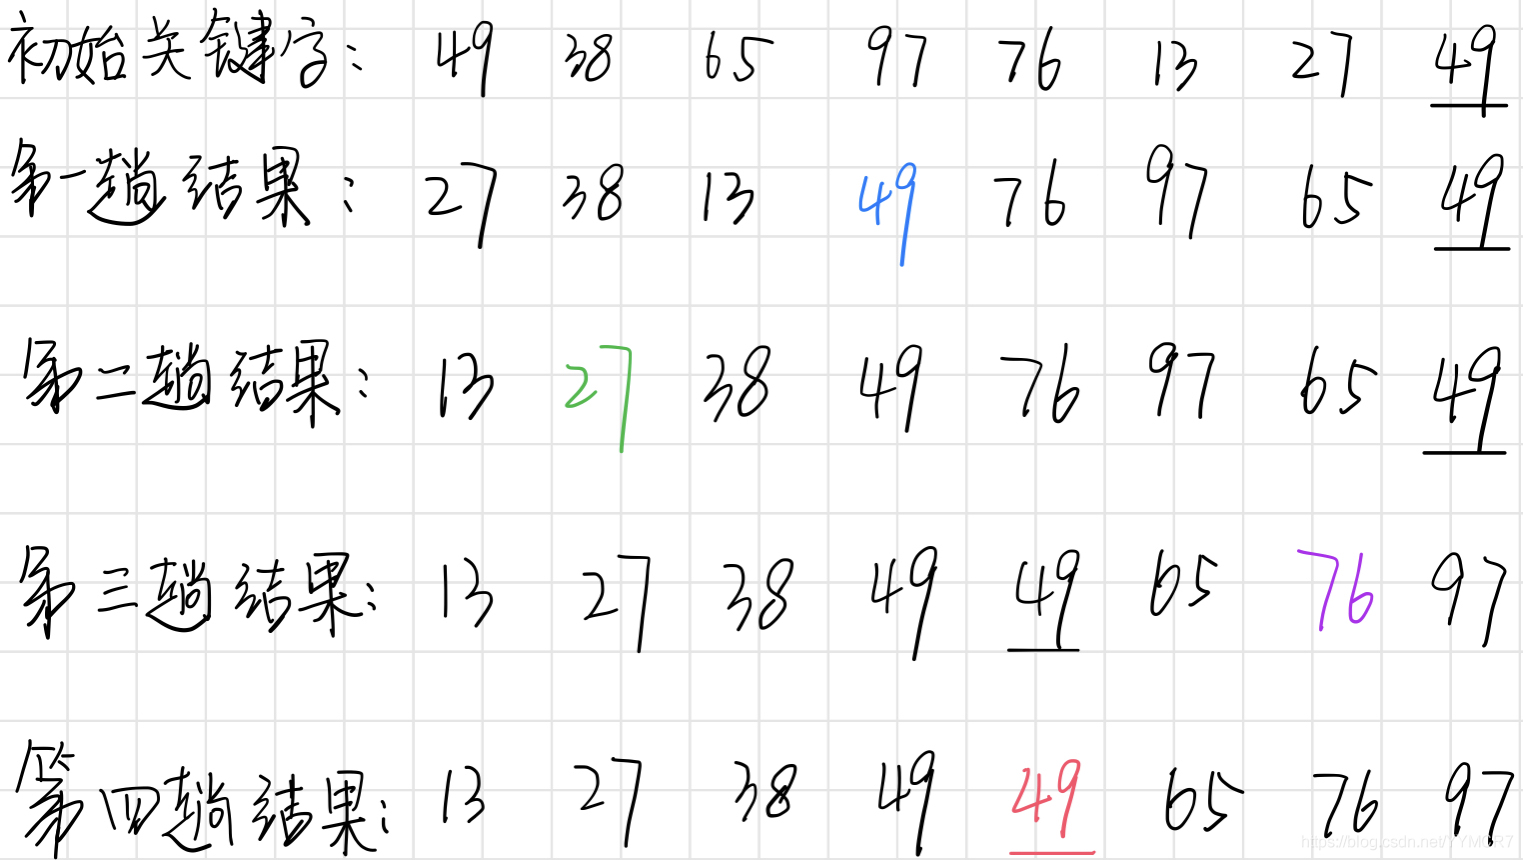 初始关键字: 49 38 65 97 76 13 27 49
第一趟结果: 27 38 13 49 76 97 65 49
第二趟结果: 13 27 38 49 76 97 65 49
第三趟结果: 13 27 38 49 49 65 76 97
第四趟结果: 13 27 38 49 49 65 76 97